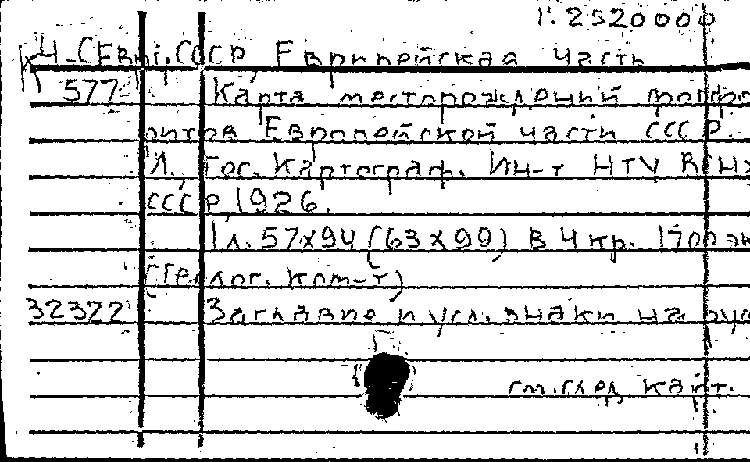 1:2520000
Ч-СЕвр., СССР, Европейская часть
577 Карта месторождений фосфо
ритов Европейской части СССР.
Л., Гос. Картограф. Ин-т НТУ ВСНХ
СССР, 1926.
1 л. 57х94 (63х99) в 4 кр. 1700 эк
(Геолог. Ком-т)
32322 Заглавие и усл. знаки на рус
см. след. карт.